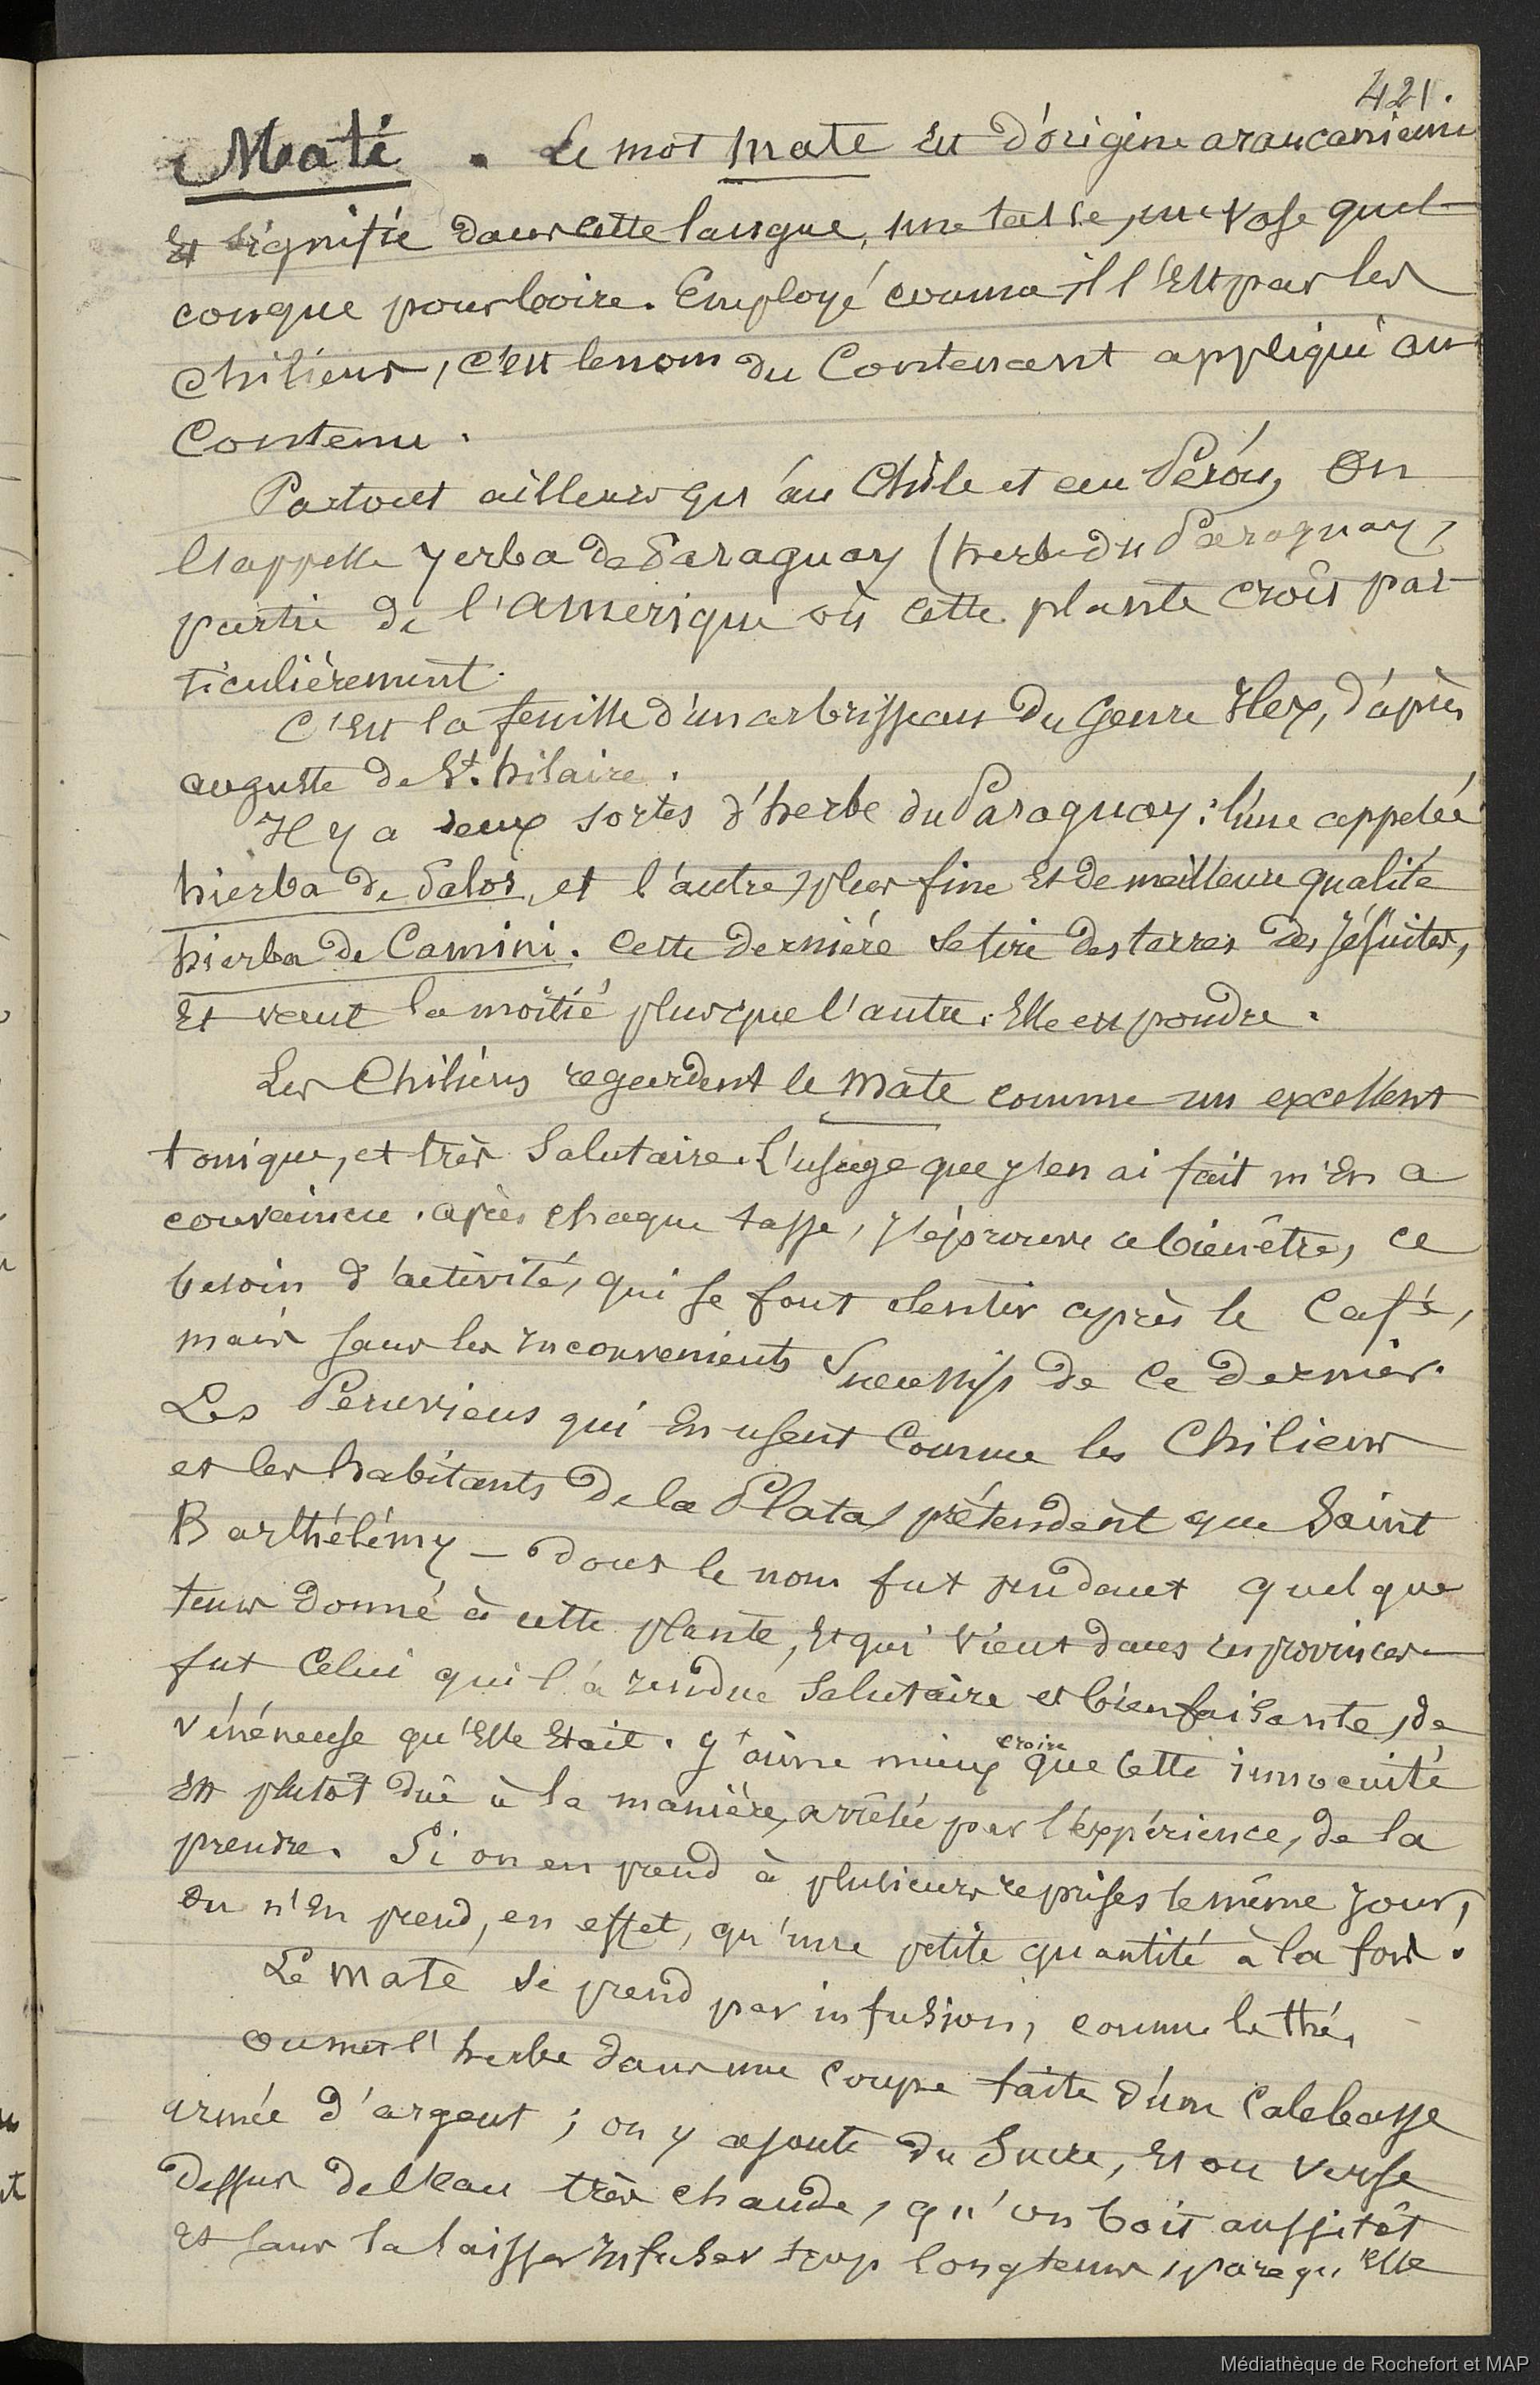 421.
Maté . Le mot mate est d'origine araucanienne
et signifie dans cette langue, une tasse, un vase quel-
conque pour boire. Employé comme il l'est par les
chiliens, c'est le nom du Contenant appliqué au
Contenu.
Partout ailleurs qu'au Chile et au Pérou, On
l'appelle yerba de Paraguay (herbe du Paraguay,
partie de l'amerique où cette plante croît par-
ticulièrement.
C'est la feuille d'un arbrisseau du Genre Ilex, d'après
auguste de St. hilaire.
Il y a deux sortes d'herbe du Paraguay: l'une appelée
hierba de Palos, et l'autre, plus fine et de meilleure qualité
hierba de Camini. Cette dernière se tire des terres des Jésuites,
et vaut la moitié plus que l'autre. Elle est poudre.
Les Chiliens regardent le mate comme un excellent
tonique, et très Salutaire. L'usage que j'en ai fait m'en a
convaincu. après chaque tasse, j'éprouve ce bien être, ce
besoin d'activité, qui se font sentir après le Café,
mais sans les inconvenients successifs de ce dernier.
Les Peruviens qui en usent Comme les Chiliens
et les habitants de la Plata, prétendent que Saint
Barthélémy – dont le nom fut pendant quelque
tems donné à cette plante, et qui vient dans ces provinces –
fut Celui qui l'a rendue Salutaire et bienfaisante, de
vénéneuse qu'elle était. j'aime mieux croire que cette innocuité
est plutot dûe à la manière, arrêtée par l'expérience, de la
prendre. Si on en prend à plusieurs reprises le même jour,
on n'en prend, en effet, qu'une petite quantité à la fois.
Le maté se prend par infusion, comme le thé.
On met l'herbe dans une coupe faite d'une Calebasse
armée d'argent; on y ajoute du Sucre, et on verse
dessus de l'eau très chaude, qu'on boit aussitôt
et sans la laisser infuser trop longtems, parcequ'elle
Médiathèque de Rochefort et MAP